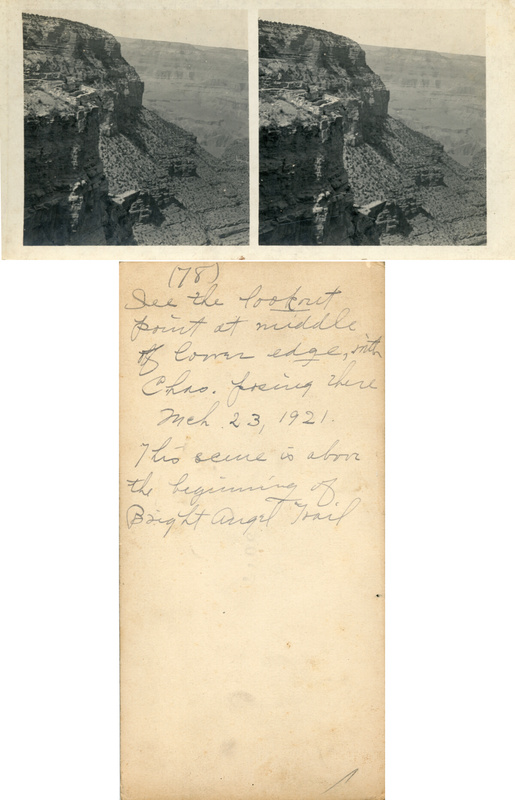 (78)
See the lookout
point at middle
of lower edge, with
Chas. posing there
Mch. 23, 1921.
This scene is above
the beginning of
Bright Angel Trail